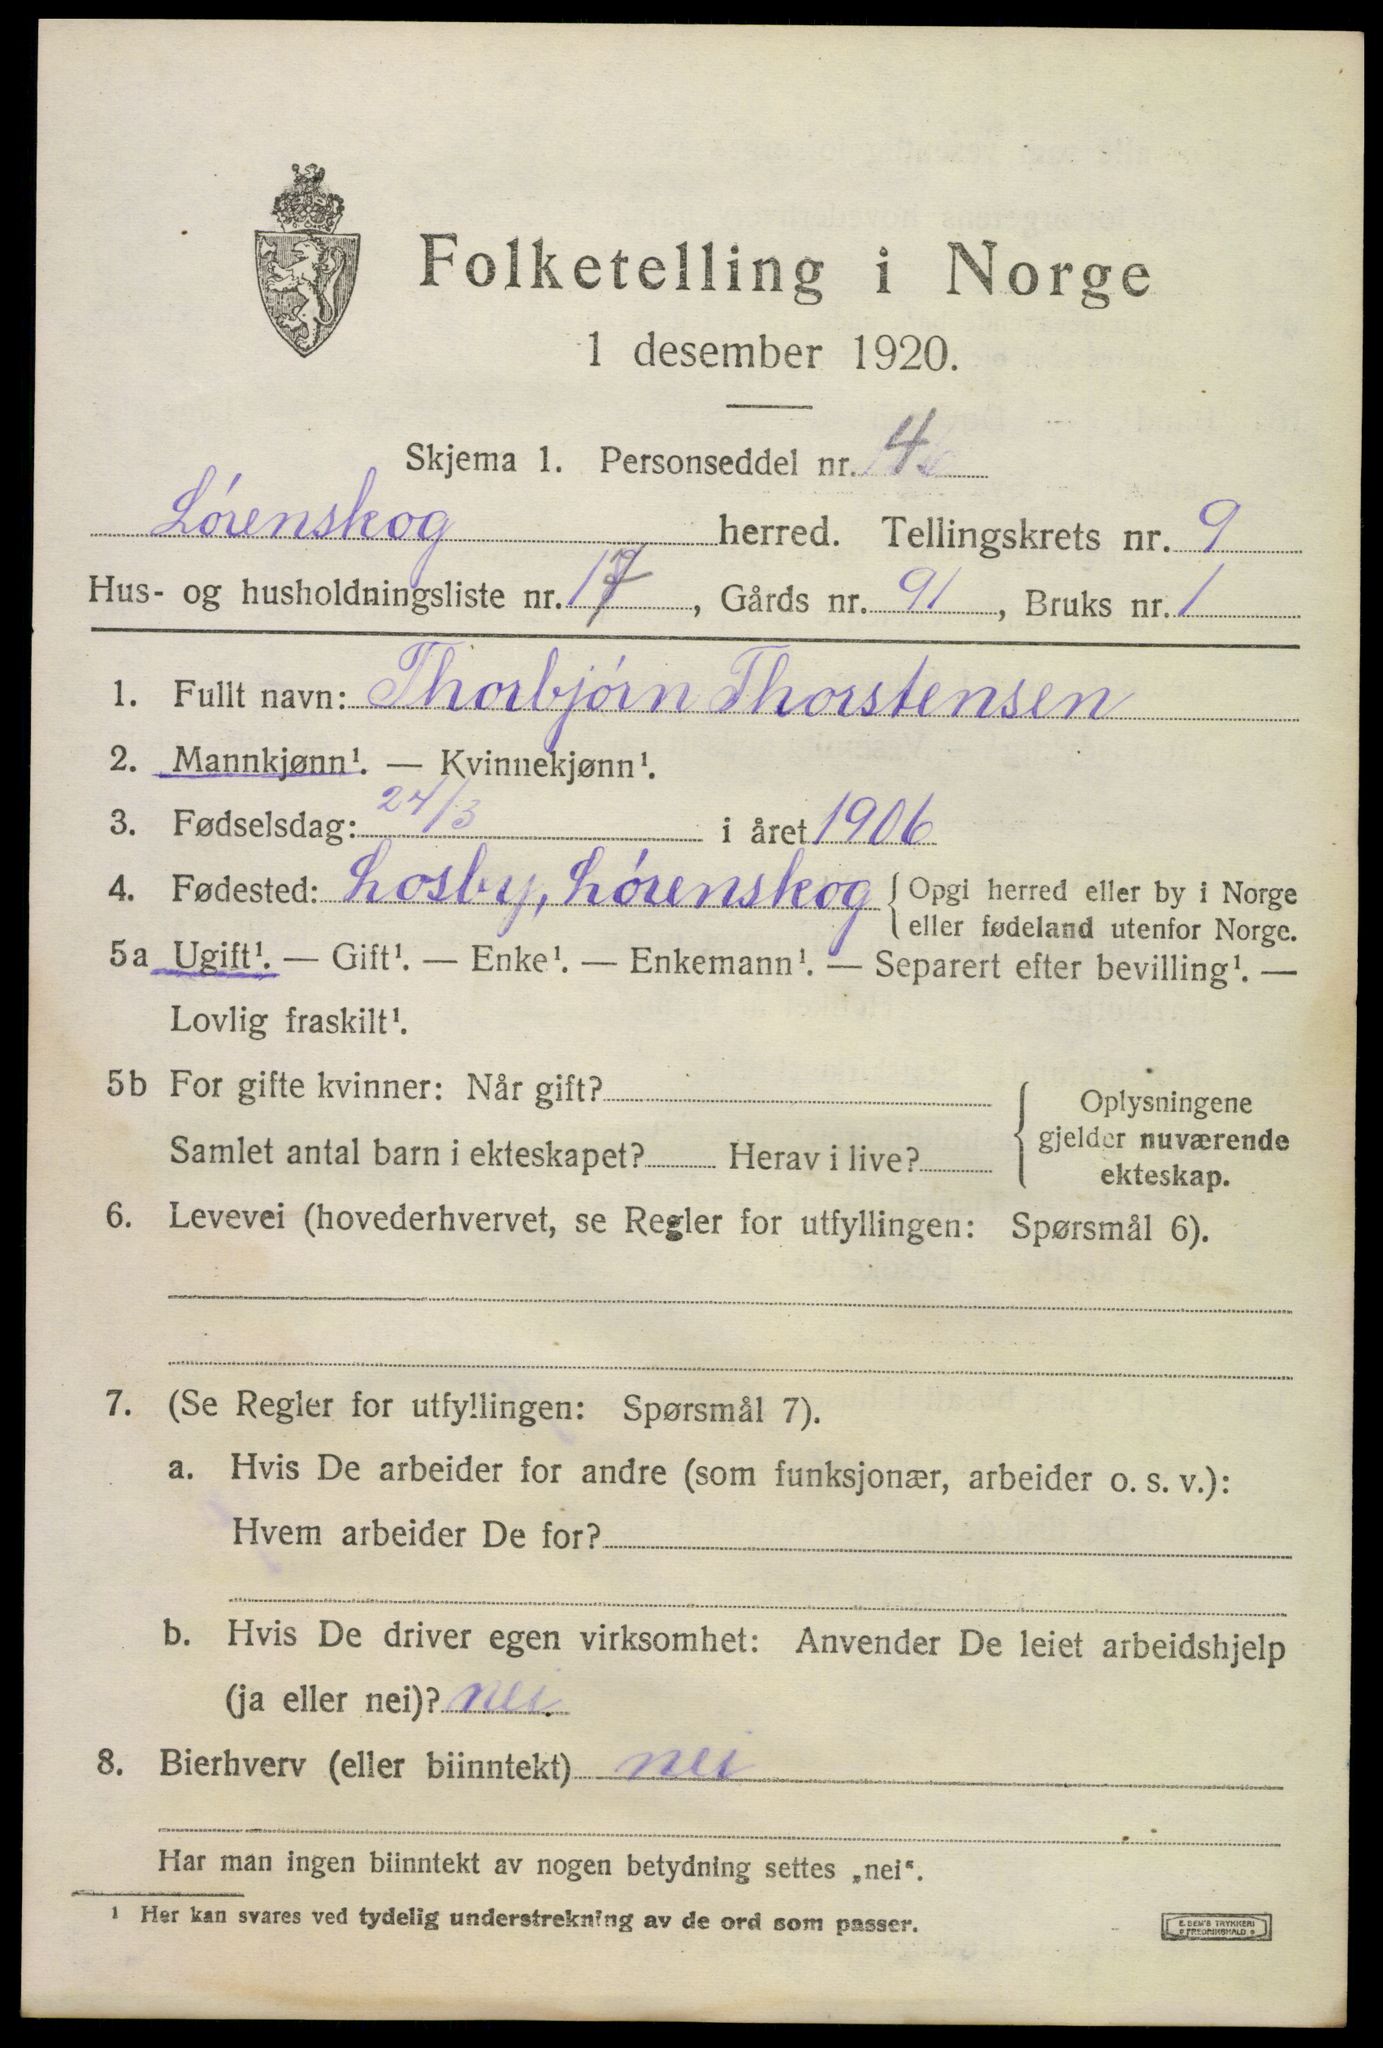 Folketelling i Norge
1 desember 1920.
Skjema 1. Personseddel nr. 4
Lórenskog herred. Tellingskrets nr. 9
Hus- og husholdningsliste nr. 17, Gårds nr. 91, Bruks nr. 1
1. Fullt navn: Thorbjórn Thorstensen
2. Mannkjønn¹. — Kvinnekjønn¹.
3. Fødselsdag: 24/3 i året 1906
4. Fødested: Losby, Lórenskog { Opgi herred eller by i Norge
eller fødeland utenfor Norge.
5a Ugift¹. — Gift¹. — Enke¹. — Enkemann¹. — Separert efter bevilling¹. —
Lovlig fraskilt¹.
5b For gifte kvinner: Når gift?
Samlet antal barn i ekteskapet? Herav i live?
Oplysningene
gjelder nuværende
ekteskap.
6. Levevei (hovederhvervet, se Regler for utfyllingen: Spørsmål 6).
7. (Se Regler for utfyllingen: Spørsmål 7).
a. Hvis De arbeider for andre (som funksjonær, arbeider o. s. v.):
Hvem arbeider De for?
b. Hvis De driver egen virksomhet: Anvender De leiet arbeidshjelp
(ja eller nei)? nei.
8. Bierhverv (eller biinntekt) nei
Har man ingen biinntekt av nogen betydning settes „nei“.
¹ Her kan svares ved tydelig understrekning av de ord som passer.
E. SEM'S TRYKKERI
FREDRIKSHALD